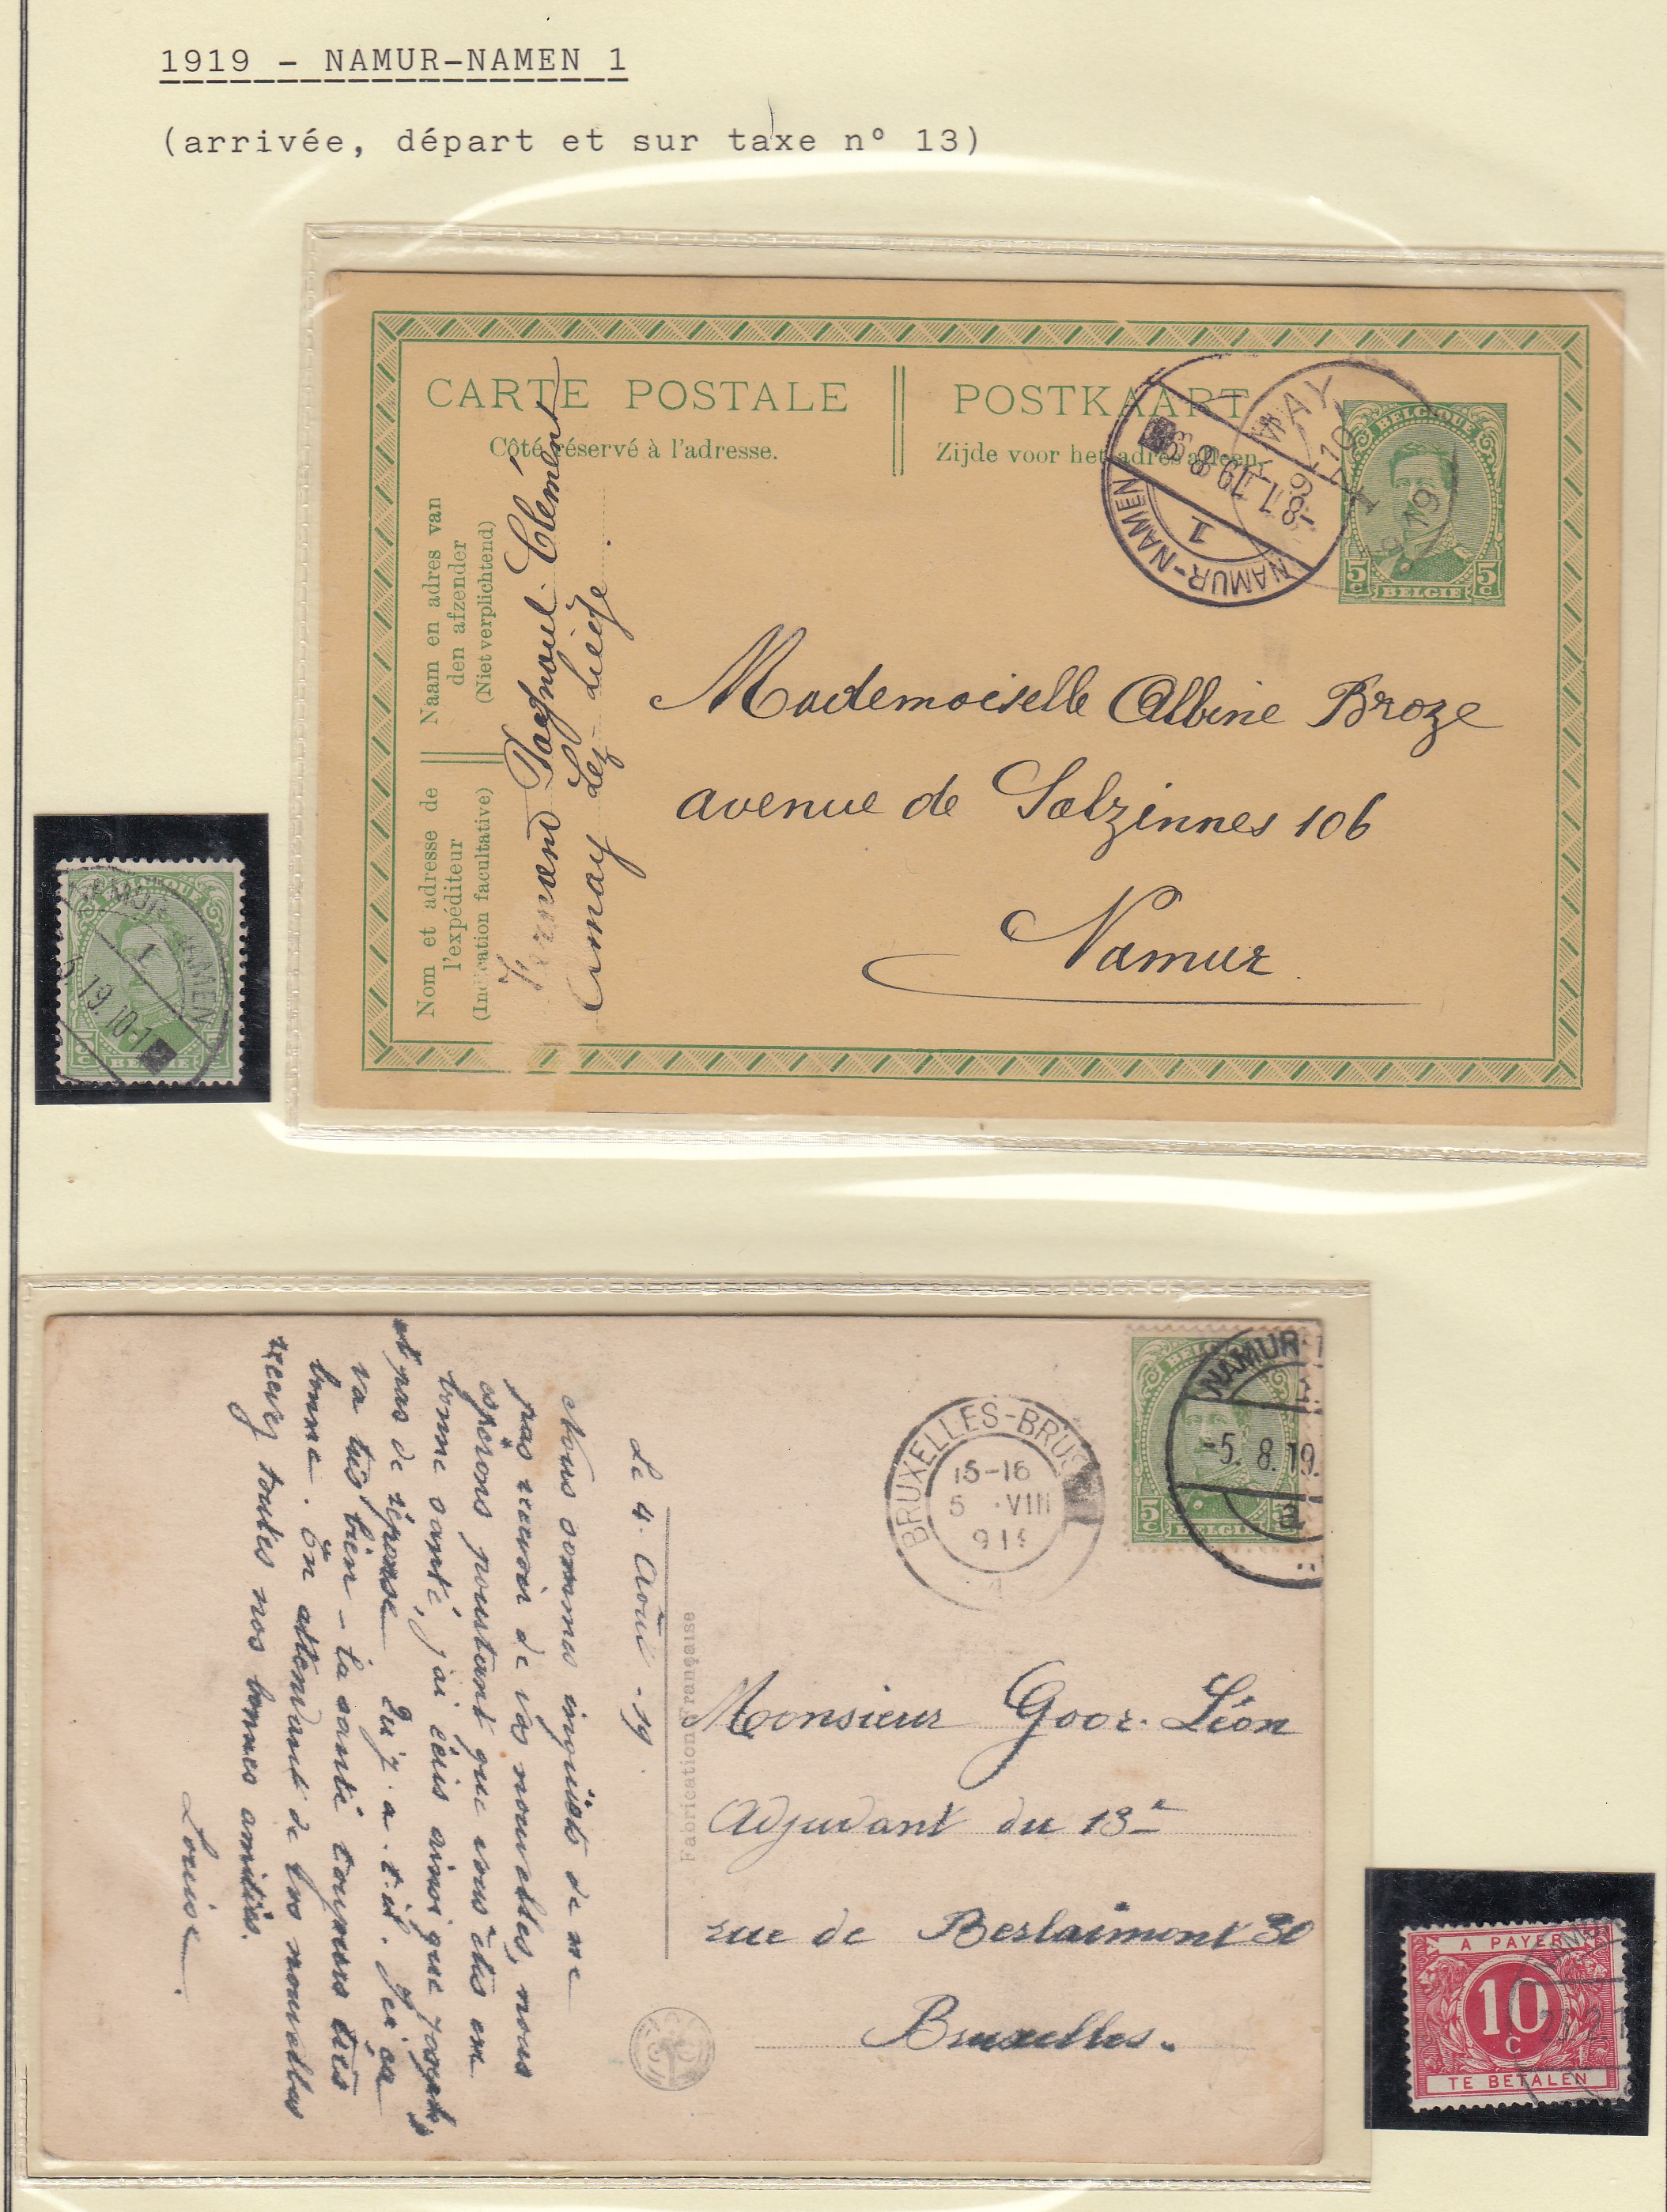 1919 - NAMUR-NAMEN 1
(arrivée, départ et sur taxe nº 13)
CARTE POSTALE
POSTKAART
Côté réservé à l'adresse.
Zijde voor het adres alleen.
Naam en adres van
den afzender
(Niet verplichtend)
Nom et adresse de
l'expéditeur
(Indication facultative)
Fernand Clément
Amay Lez Liège
NAMUR-NAMEN
1
AMAY
BELGIQUE
5c 5c
BELGIE
Mademoiselle Albine Broze
avenue de Salzinnes 106
Namur
BELGIQUE
NAMUR NAMEN
1
19.10-1
5c
BELGIE
Le 4. Août - 19.
Nous sommes inquiets de ne
pas recevoir de vos nouvelles, nous
espérons pourtant que vous êtes en
bonne santé, j'ai écris ainsi que
et pas de réponse Qu'y-a-t-il. Ici ça
va très bien - la santé toujours très
bonne. En attendant de tes nouvelles
recevez toutes nos bonnes amitiés.
Louise.
Fabrication Française
BRUXELLES-BRUS
15-16
5 VIII
NAMUR-
-5.8.19.
5c
BELGIE
Monsieur Goor. Léon
Adjudant du 13e
rue de Berlaimont 30
Bruxelles.
A PAYER
10
c
TE BETALEN